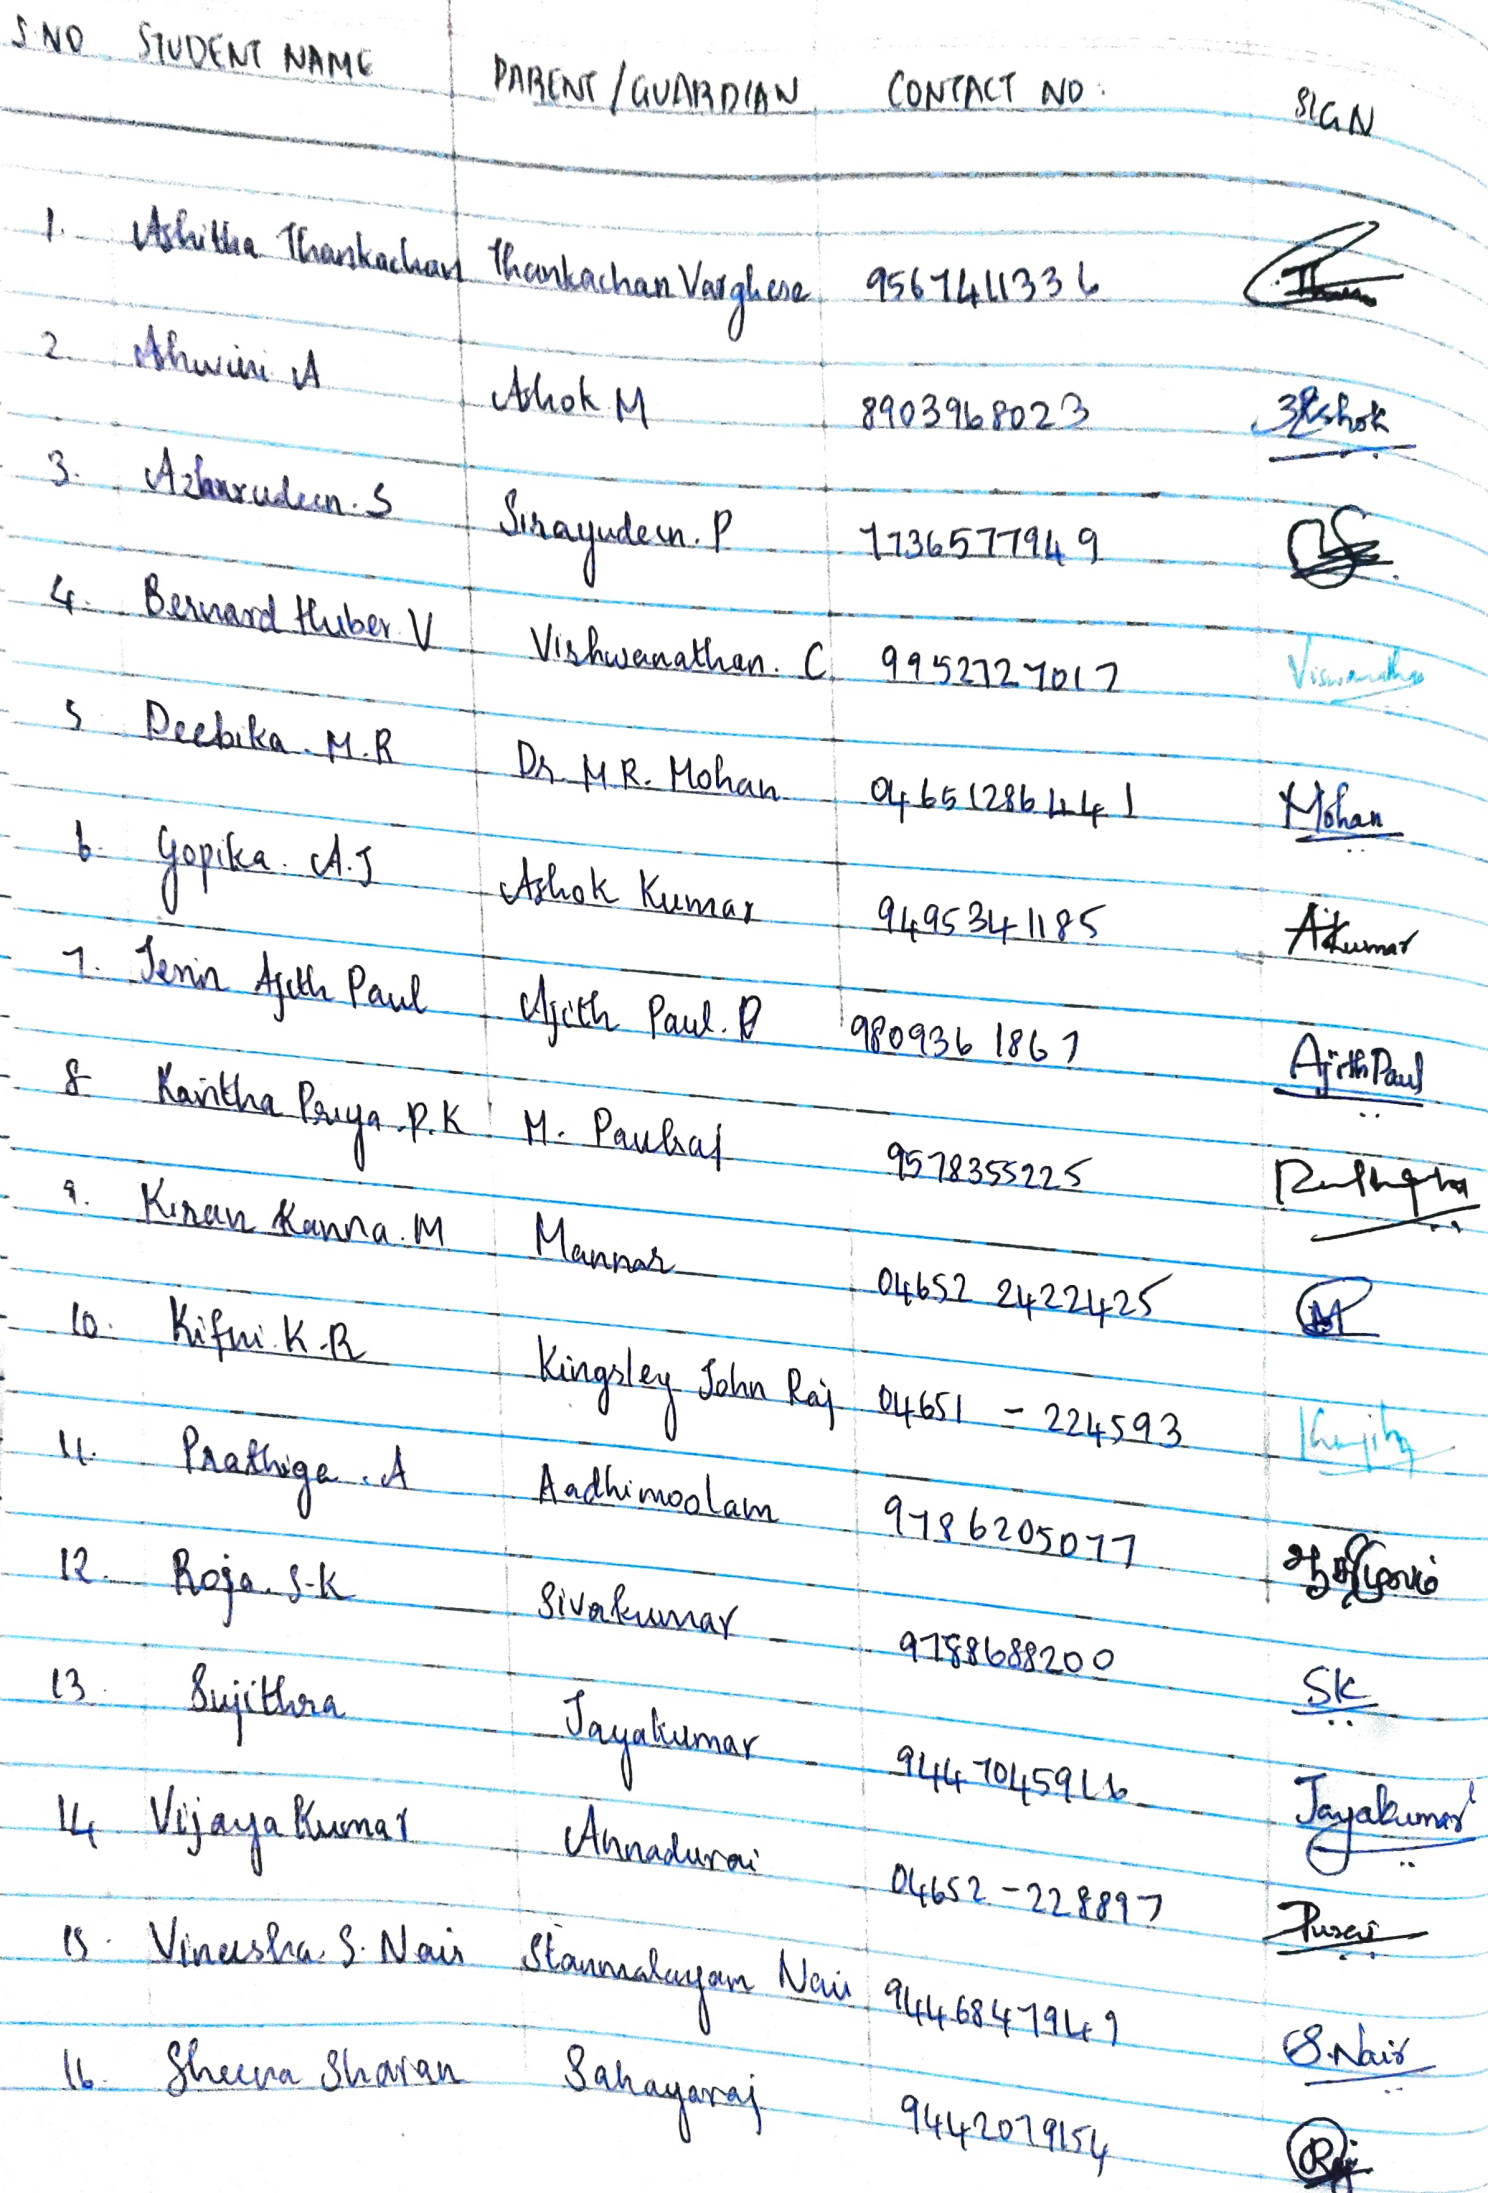 S.NO STUDENT NAME PARENT/GUARDIAN CONTACT NO. SIGN
1. Ashitha Thankachan Thankachan Varghese 9567411336
2. Ashwini A Ashok M 8903968023 Ashok
3. Azharudeen.S Sirayudeen.P 7736577949
4. Bernard Huber V Vishwanathan. C 9952727017 Viswanathan
5 Deebika.M.R Dr.M.R.Mohan 046512864441 Mohan
6. Gopika.A.J Ashok Kumar 9495341185 A.Kumar
7. Jenin Ajith Paul Ajith Paul.P 9809361867 Ajith Paul
8 Kavitha Priya.P.K M. Paulraj 9578355225
9. Kiran Kanna.M Mannar 04652 2422425 M
10. Kifni.K.R Kingsley John Raj 04651 - 224593
11. Prathiga.A Aadhimoolam 9786205077 ஆதிமூலம்
12. Roja.S.K Sivakumar 9788688200 SK
13. Sujithra Jayakumar 9447045916 Jayakumar
14 Vijaya Kumar Annadurai 04652-228897 Durai
15. Vineesha.S.Nair Stanmalayam Nair 9446847949 S.Nair
16. Sheena Sharan Sahayaraj 9442079154 Raj